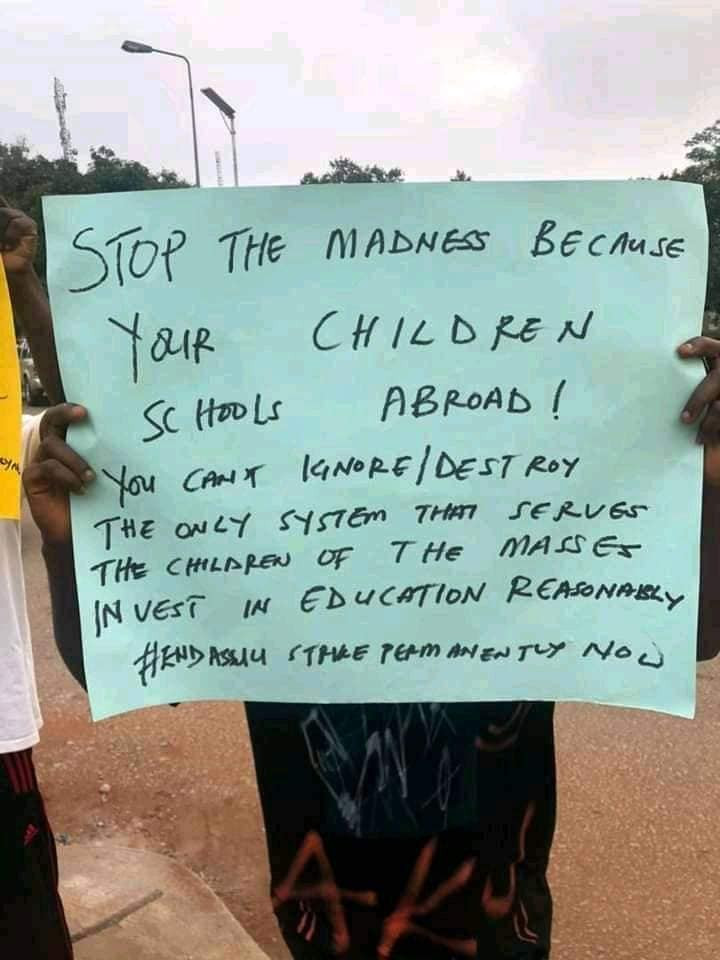 STOP THE MADNESS BECAUSE
YOUR CHILDREN
SCHOOLS ABROAD!
YOU CAN'T IGNORE/DESTROY
THE ONLY SYSTEM THAT SERVES
THE CHILDREN OF THE MASSES
INVEST IN EDUCATION REASONABLY
#END ASUU STRIKE PERMANENTLY NOW